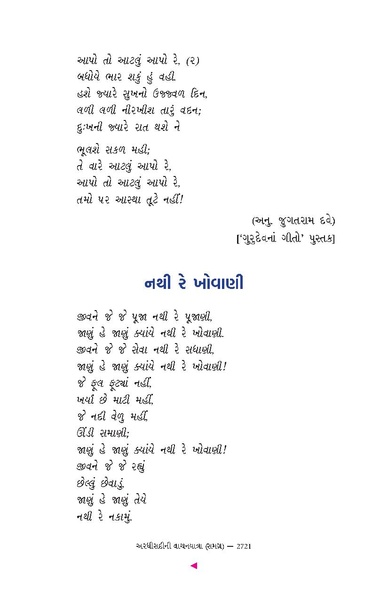 આપો તો આટલું આપો રે, (૨)
બધોવે ભાર શકું હું વહી.
હશે જ્યારે સુખનો ઉજ્જ્વળ દિન,
લળી લળી નીરખીશ તારું વદન;
દુઃખની જ્યારે રાત થશે ને
ભૂલશે સકળ મહી;
તે વારે આટલું આપો રે,
આપો તો આટલું આપો રે,
તમો પર આસ્થા તૂટે નહીં!
(અનુ. જુગતરામ દવે)
[‘ગુરુદેવનાં ગીતો’ પુસ્તક]
નથી રે ખોવાણી
જીવને જે જે પૂજા નથી રે પૂજાણી,
જાણું હે જાણું ક્યાંયે નથી રે ખોવાણી.
જીવને જે જે સેવા નથી રે સધાણી,
જાણું હે જાણું ક્યાંયે નથી રે ખોવાણી!
જે ફૂલ ફૂટ્યાં નહીં,
ખર્યાં છે માટી મહીં,
જે નદી વેળુ મહીં,
ઊંડી સમાણી;
જાણું હે જાણું ક્યાંયે નથી રે ખોવાણી!
જીવને જે જે રહ્યું
છેલ્લું છેવાડું,
જાણું હે જાણું તેયે
નથી રે નકામું.
અરધીસદીની વાચનયાત્રા (સમગ્ર) — 2721